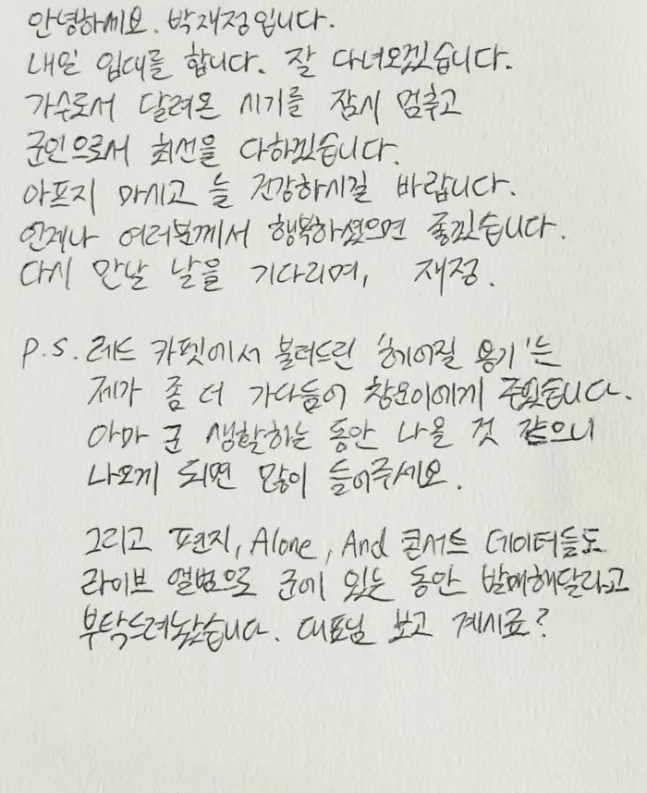 안녕하세요. 박재정입니다.
내일 입대를 합니다. 잘 다녀오겠습니다.
가수로서 달려온 시기를 잠시 멈추고
군인으로서 최선을 다하겠습니다.
아프지 마시고 늘 건강하시길 바랍니다.
언제나 여러분께서 행복하셨으면 좋겠습니다.
다시 만날 날을 기다리며, 재정.
P.S. 레드 카펫에서 불러드린 '헤어질 용기'는
제가 좀 더 가다듬어 창운이에게 주었습니다.
아마 군 생활하는 동안 나올 것 같으니
나오게 되면 많이 들어주세요.
그리고 편지, Alone, And 콘서트 데이터들도
라이브 앨범으로 군에 있는 동안 발매해달라고
부탁드려놨습니다. 대표님 보고 계시죠?